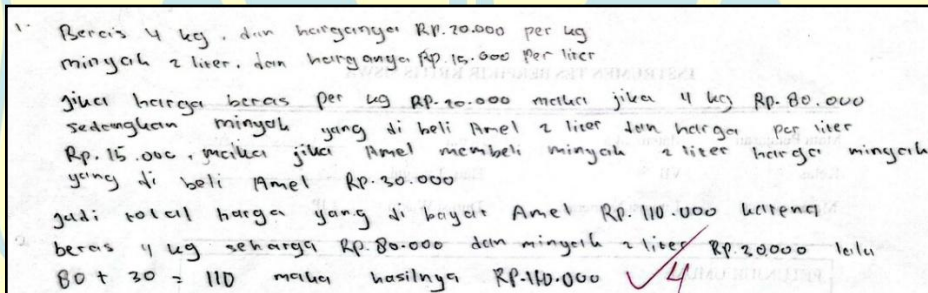 1. Beras 4 kg. dan harganya Rp. 20.000 per kg
minyak 2 liter. dan harganya Rp. 15.000 Per liter
jika harga beras per kg Rp. 20.000 maka jika 4 kg Rp. 80.000
sedangkan minyak yang di beli Amel 2 liter dan harga per liter
Rp. 15.000, maka jika Amel membeli minyak 2 liter harga minyak
yang di beli Amel Rp. 30.000
jadi total harga yang di bayar Amel Rp. 110.000 karena
beras 4 kg seharga Rp. 80.000 dan minyak 2 liter Rp. 30.000 lalu
80 + 30 = 110 maka hasilnya Rp. 110.000 4